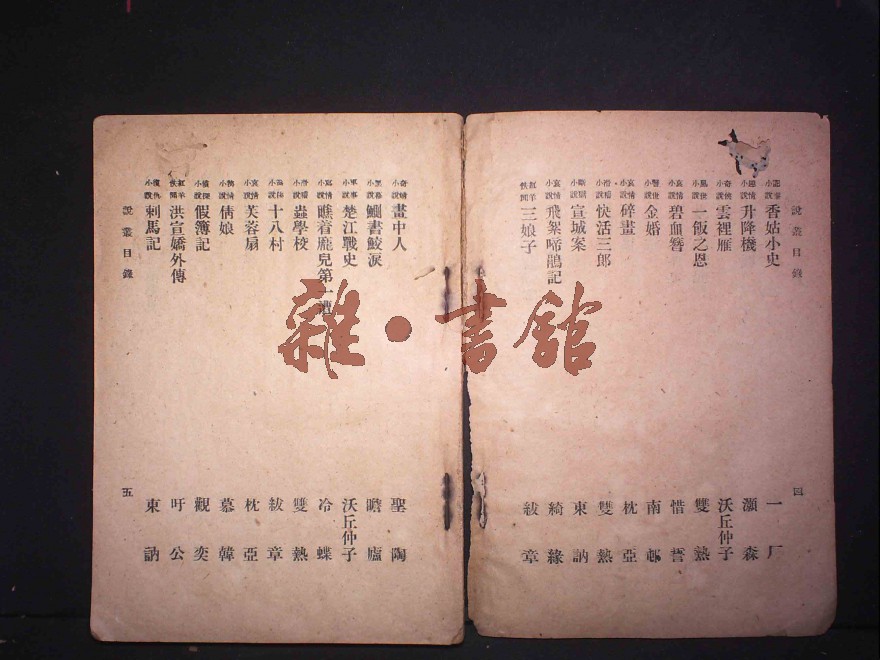 說叢目錄
四
小說 香姑小史 一厂
小說 升降機 瀕森
奇俠小說 雲裡雁 沃丘仲子
小說 一飯之恩 雙熱
哀情小說 碧血簪 惜誓
警世小說 金婚 南邨
哀情小說 碎畫 枕亞
滑稽小說 快活三郎 雙熱
小說 宣城案 東訥
哀情小說 飛絮啼鵑記 綺緣
紅羊佚聞 三娘子 紱章
奇情小說 畫中人 聖陶
小說 鰥書鮫淚 瞻廬
軍事小說 楚江戰史 沃丘仲子
寫情小說 瞧着龐兒第一遭 冷蝶
滑稽小說 蟲學校 雙熱
小說 十八村 紱章
哀情小說 芙蓉扇 枕亞
小說 倩娘 慕韓
偵探小說 假簿記 觀奕
紅羊佚聞 洪宣嬌外傳 吁公
復仇小說 刺馬記 東訥
說叢目錄
五
雜·書館